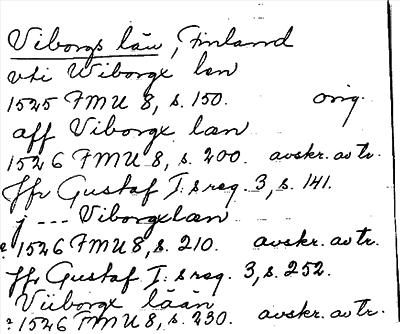 Viborgs län, Finland
uti Wiborgx len
1525 FMU 8, s. 150. orig.
aff Viborgx læn
1526 FMU 8, s. 200. avskr. av tr.
Jfr Gustaf I:s reg. 3, s. 141.
j --- Viborgxlæn
1526 FMU 8, s. 210. avskr. av tr.
Jfr Gustaf I:s reg. 3, s. 252.
Viiborgx lään
1526 FMU 8, s. 230. avskr. av tr.